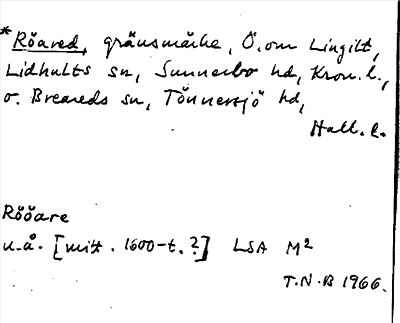 *Röared, gränsmärke, Ö. om Lingilt,
Lidhults sn, Sunnerbo hd, Kron. l.,
o. Breareds sn, Tönnersjö hd,
Hall. l.
Rööare
u.å. [mitt. 1600-t.?] LSA M2
T.N.B 1966.